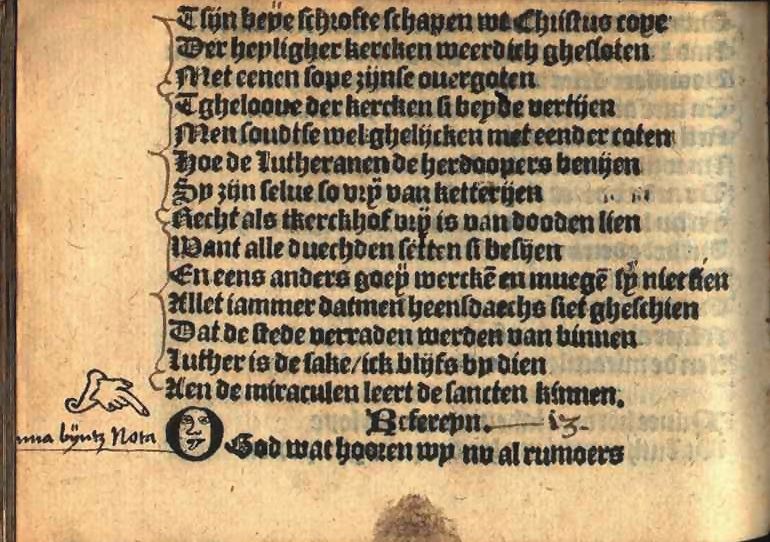 Tsijn beye schrofte schapen wt Christus coye
Der heyligher kercken weerdich ghesloten
Met eenen sope zijnse ouergoten
Tghelooue der kercken si beyde vertijen
Men soudtse wel ghelijcken met eender coten
Hoe de Lutheranen de herdoopers benijen
Sy zijn selue so vrij van ketterijen
Recht als tkerckhof vrij is van dooden lien
Want alle duechden setten si besijen
En eens anders goey werckē en muegē sy niet sien
Allet iammer datmen heensdaechs siet gheschien
Dat de stede verraden werden van binnen
Luther is de sake/ick blijfs by dien
Aen de miraculen leert de sancten kinnen.
Refereyn. 13.
nna bijntz Nota
O God wat hooren wy nv al rumoers